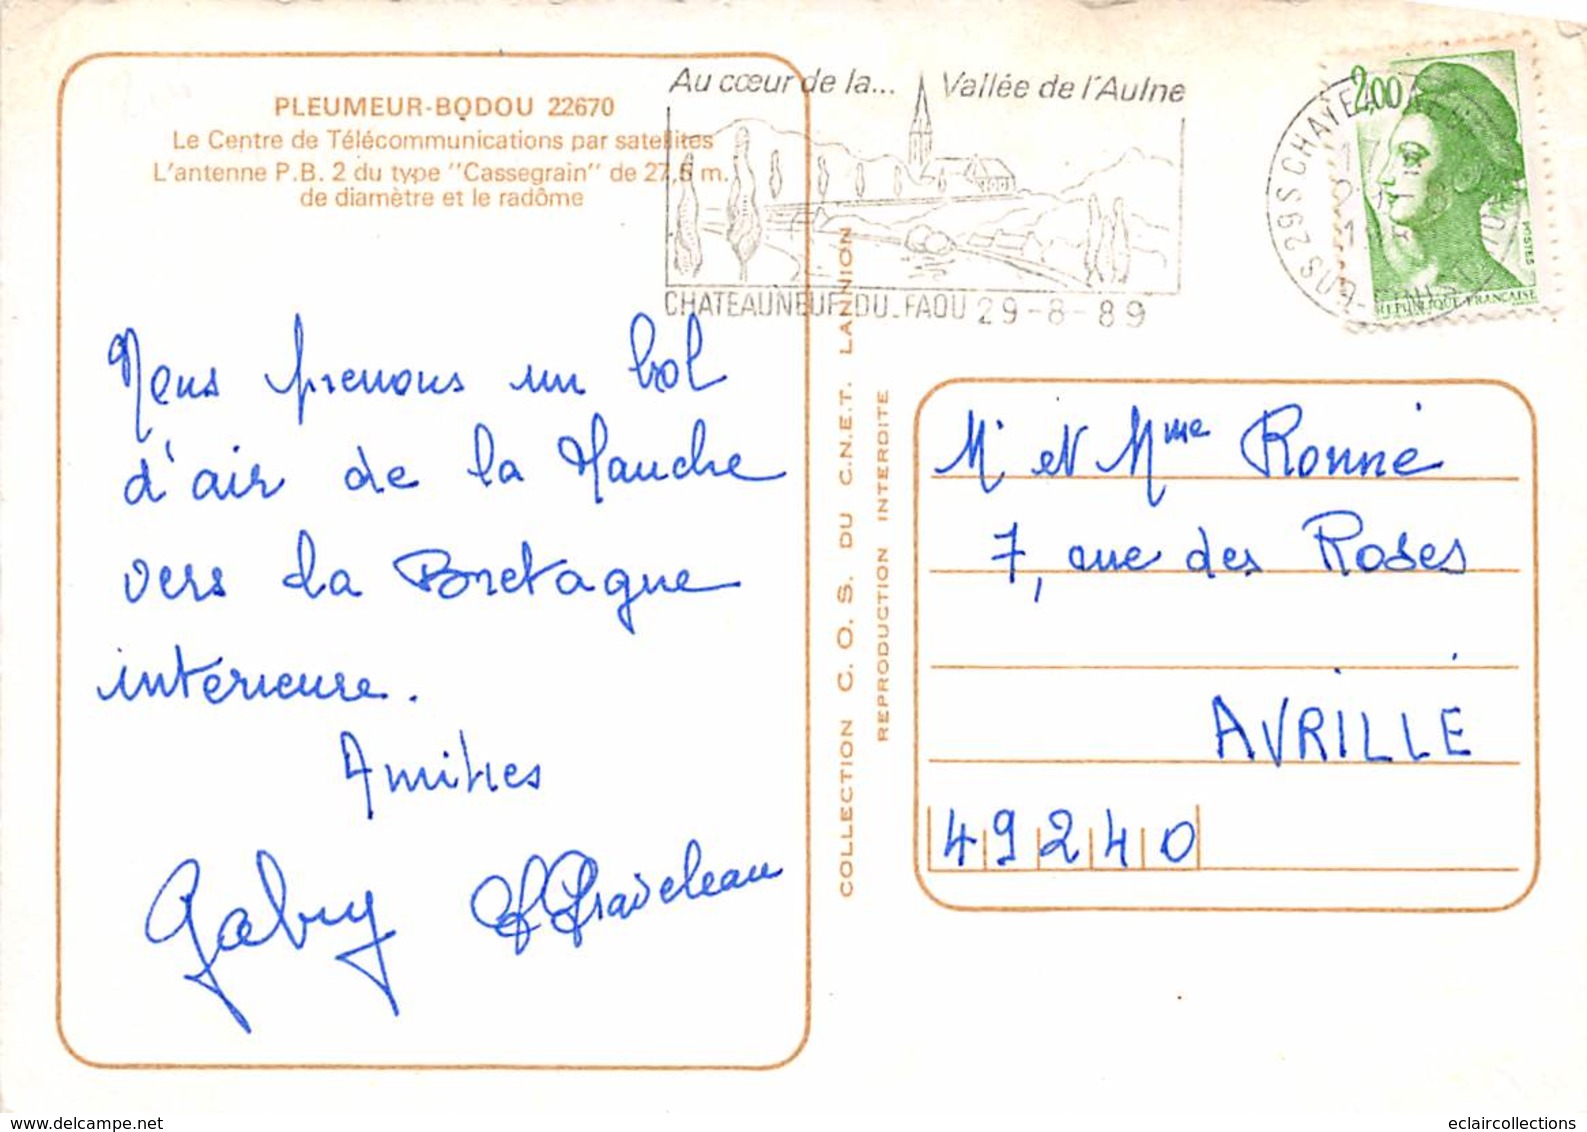 PLEUMEUR-BODOU 22670
Le Centre de Télécommunications par satellites
L'antenne P.B. 2 du type "Cassegrain" de 27,5 m.
de diamètre et le radôme
Au cœur de la... Vallée de l'Aulne
CHATEAUNEUF-DU-FAOU 29-8-89
2,00
POSTES
REPUBLIQUE-FRANÇAISE
Nous prenons un bol
d'air de la Manche
vers la Bretagne
intérieure.
Amitiés
Gaby
COLLECTION C. O. S. DU C.N.E.T. LANNION
REPRODUCTION INTERDITE
Mr et Mme Ronné
7, rue des Roses
AVRILLÉ
49240
delcampe.net
eclaircollections